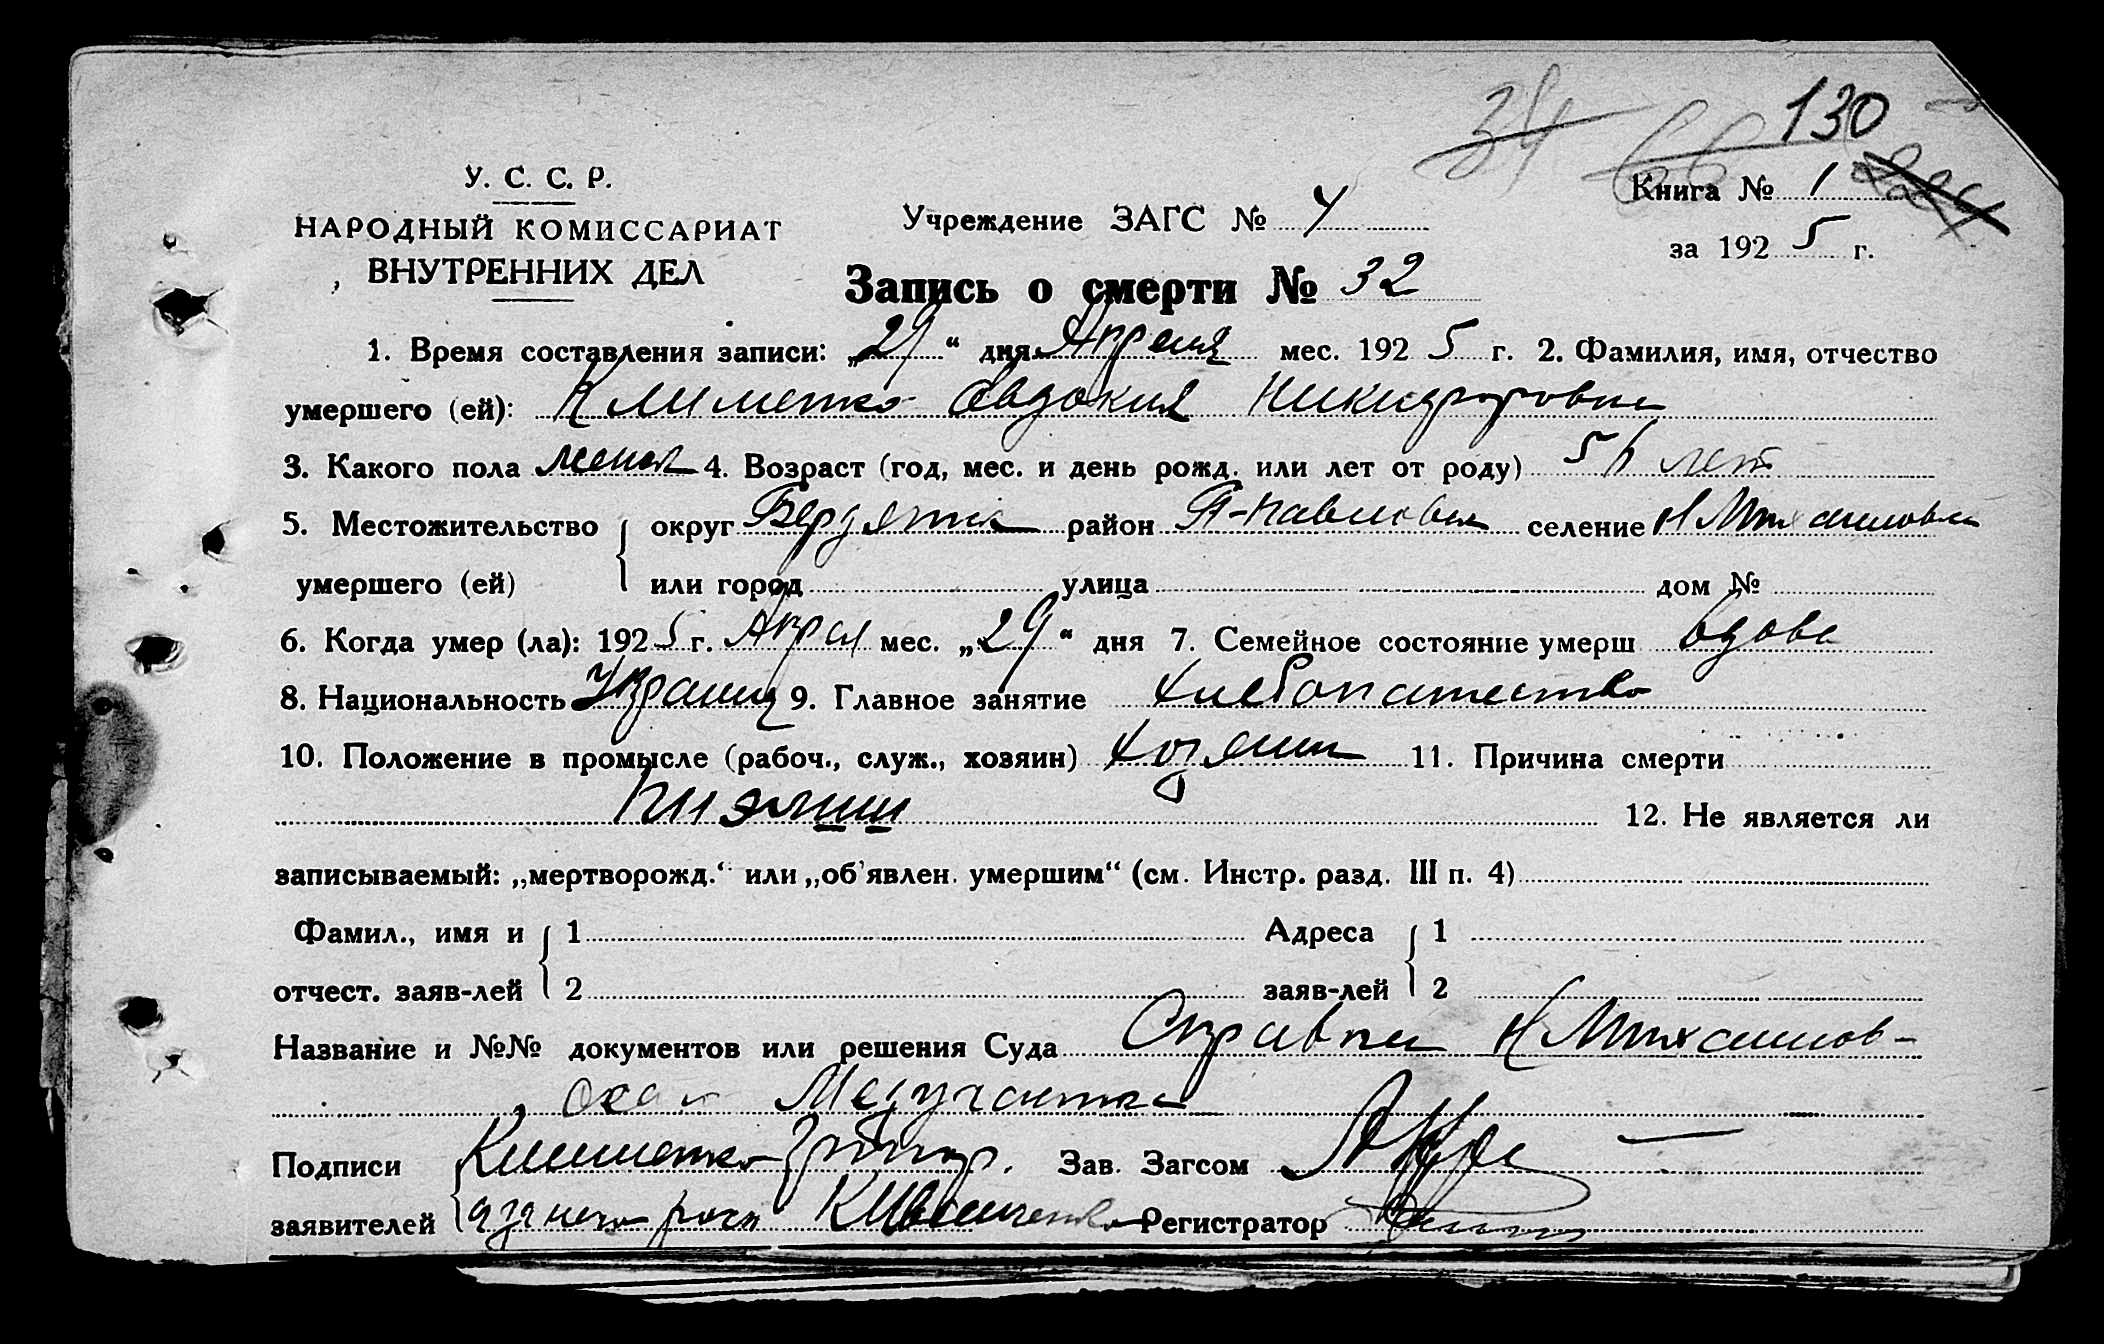 34 66 130
У. С. С. Р.
НАРОДНЫЙ КОМИССАРИАТ
ВНУТРЕННИХ ДЕЛ
Учреждение ЗАГС № 4
Книга № 1
за 1925 г.
Запись о смерти № 32
1. Время составления записи: „29“ дня Апреля мес. 1925 г. 2. Фамилия, имя, отчество
умершего (ей): Клименко Евдокия Никифоровна
3. Какого пола женск 4. Возраст (год, мес. и день рожд. или лет от роду) лет
5. Местожительство округ Бердянск район Павловск селение Н Михайловка
умершего (ей) или город улица дом №
6. Когда умер (ла): 1925 г. Апрел мес. „29“ дня 7. Семейное состояние умерш вдова
8. Национальность Украин 9. Главное занятие Хлебопашество
10. Положение в промысле (рабоч., служ., хозяин) хозяин 11. Причина смерти
12. Не является ли
записываемый: „мертворожд.“ или „об'явлен. умершим“ (см. Инстр. разд. III п. 4)
Фамил., имя и 1 Адреса 1
отчест. заяв-лей 2 заяв-лей 2
Название и №№ документов или решения Суда Справка Н Михайлов-
Медучастка
Подписи Клименко Зав. Загсом
заявителей Регистратор